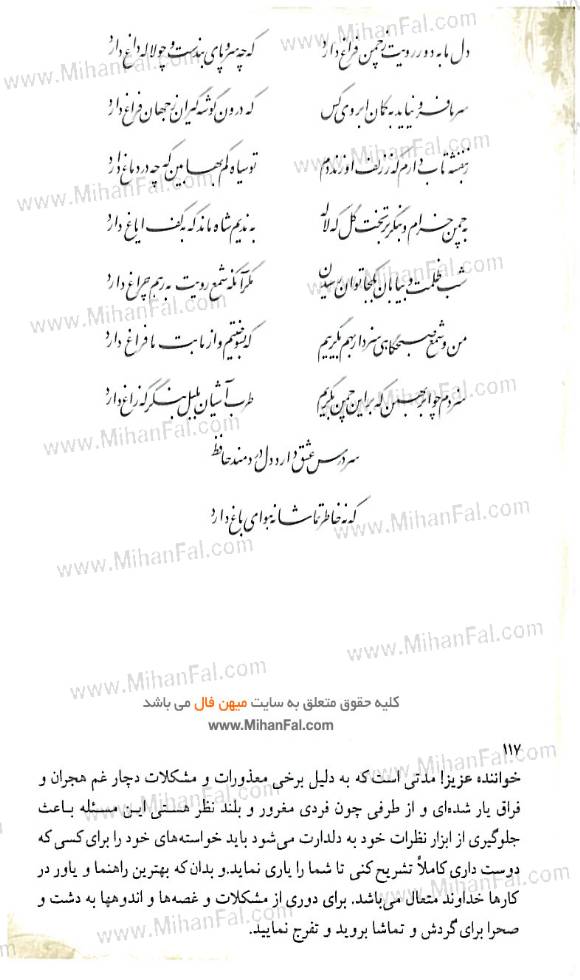 دل ما به دور رویت ز چمن فراغ دارد
که چو سرو پای بندست و چو لاله داغ دارد
سر ما فرو نیاید به کمان ابروی کس
که درون گوشه گیران ز جهان فراغ دارد
ز بنفشه تاب دارم که ز زلف او زند دم
تو سیاه کم بها بین که چه در دماغ دارد
به چمن خرام و بنگر بر تخت گل که لاله
به ندیم شاه ماند که به کف ایاغ دارد
شب ظلمت و بیابان به کجا توان رسیدن
مگر آنکه شمع رویت به رهم چراغ دارد
من و شمع صبحگاهی سزد ار بهم بگرییم
که بسوختیم و از ما بت ما فراغ دارد
سزدم چو ابر بهمن که بر این چمن بگریم
طرب آشیان بلبل بنگر که زاغ دارد
سر درس عشق دارد دل دردمند حافظ
که نه خاطر تماشا نه هوای باغ دارد
کلیه حقوق متعلق به سایت میهن فال می باشد
www.MihanFal.com
۱۱۷
خواننده عزیز! مدتی است که به دلیل برخی معذورات و مشکلات دچار غم هجران و
فراق یار شده‌ای و از طرفی چون فردی مغرور و بلند نظر هستی این مسئله باعث
جلوگیری از ابزار نظرات خود به دلدارت می‌شود باید خواسته‌های خود را برای کسی که
دوست داری کاملاً تشریح کنی تا شما را یاری نماید.و بدان که بهترین راهنما و یاور در
کارها خداوند متعال می‌باشد. برای دوری از مشکلات و غصه‌ها و اندوهها به دشت و
صحرا برای گردش و تماشا بروید و تفرج نمایید.